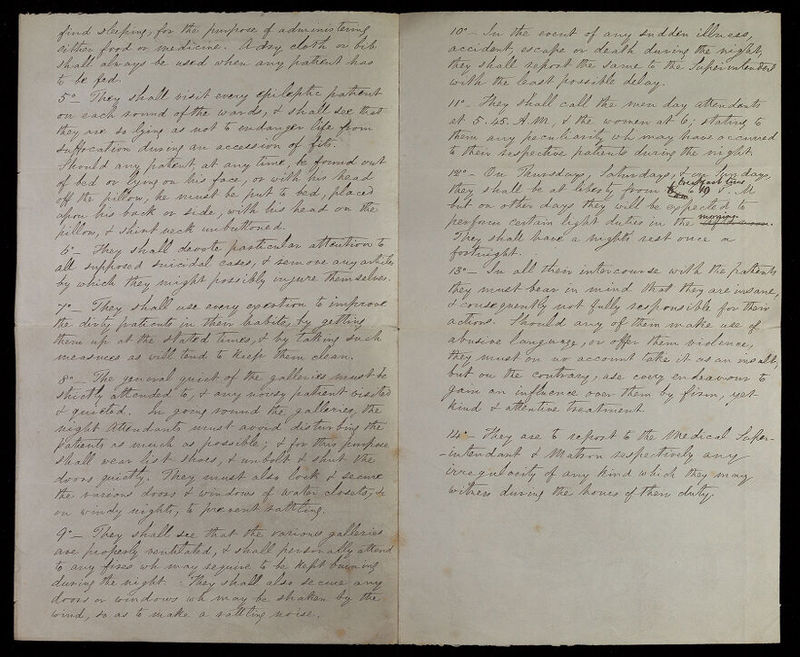 find sleeping, for the purpose of administering
either food or medicine. A dry cloth or bib
shall always be used when any patient has
to be fed.
5º— They shall visit every epileptic patient
on each round of the wards, & shall see that
they are so lying as not to endanger life from
suffocation during an accession of fits.
Should any patient, at any time, be found out
of bed or lying on his face, or with his head
off the pillow, he must be put to bed, placed
upon his back or side, with his head on the
pillow, & shirt neck unbuttoned.
6º— They shall devote particular attention to
all supposed suicidal cases, & remove any article
by which they might possibly injure themselves.
7º— They shall use every exertion to improve
the dirty patients in their habits, by getting
them up at the stated times, & by taking such
measures as will tend to keep them clean.
8º— The general quiet of the galleries must be
strictly attended to, & any noisy patient visited
& quieted. In going round the galleries, the
night Attendants must avoid disturbing the
patients as much as possible; & for this purpose
shall wear list shoes, & unbolt & shut the
doors quietly. They must also lock & secure
the various doors & windows of water closets, &c
on windy nights, to prevent rattling.
9º— They shall see that the various galleries
are properly ventilated, & shall personally attend
to any fires wh may require to be kept burning
during the night. They shall also secure any
doors or windows wh may be shaken by the
wind, so as to make a rattling noise.
10º— In the event of any sudden illness,
accident, escape or death during the night,
they shall report the same to the Superintendent
with the least possible delay.
11º— They shall call the men day attendants
at 5.45. A.M., & the women at 6; stating to
them any peculiarity wh may have occurred
to their respective patients during the night.
12º— On Thursdays, Saturdays, & on Sundays,
they shall be at liberty from to 10 P.M
but on other days they will be expected to
perform certain light duties in the morning.
They shall have a night's rest once a
fortnight.
13º— In all their intercourse with the patients
they must bear in mind that they are insane,
& consequently not fully responsible for their
actions. Should any of them make use of
abusive language, or offer them violence,
they must on no account take it as an insult,
but on the contrary, use every endeavour to
gain an influence over them by firm, yet
kind & attentive treatment.
14º— They are to report to the Medical Super-
-intendant & Matron respectively any
irregularity of any kind which they may
witness during the hours of their duty.